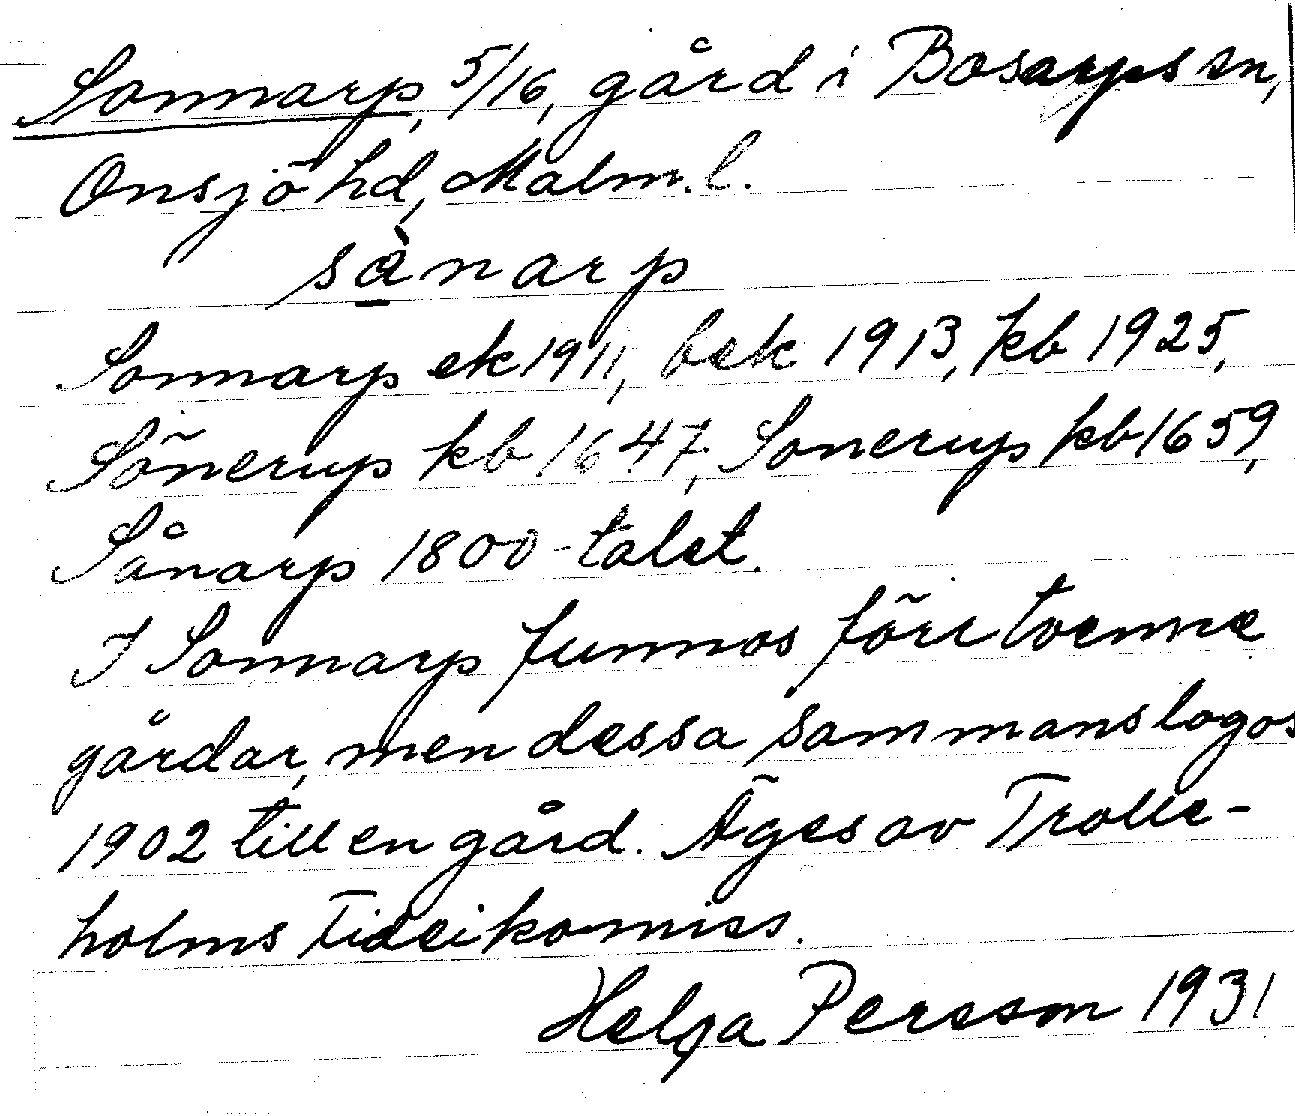 Sonnarp, 5/16, gård i Bosarps sn,
Onsjö hd, Malm. l.
sà̱narp
Sonnarp ek 1911, bek 1913, kb 1925,
Sönerup kb 1647, Sonerup kb 1659,
Sånarp 1800-talet.
I Sonnarp funnos förr tvenne
gårdar, men dessa sammanslogos
1902 till en gård. Äges av Trolle-
holms Fideikomiss.
Helga Persson 1931